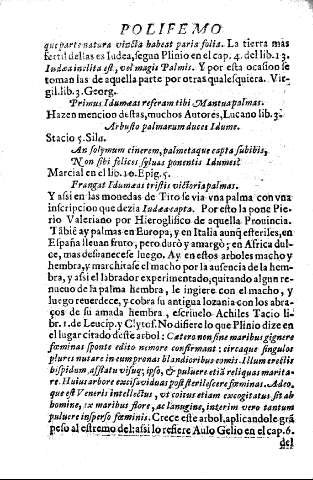 POLIFEMO
que parte natura vincla habeat paria folia. La tierra mas
fertil dellas es Iudea, segun Plinio en el cap. 4. del lib. 13.
Iudæa inclita est, vel magis Palmis. Y por esta ocasion se
toman las de aquella parte por otras qualesquiera. Vir-
gil. lib. 3. Georg.
Primus Idumæas referam tibi Mantua palmas.
Hazen mencion destas, muchos Autores, Lucano lib. 3.
Arbusto palmarum duces Idume.
Stacio 5. Silu.
An solymum cinerem, palmetaque capta subibis,
Non sibi felices syluas ponentis Idumes?
Marcial en el lib. 10. Epig. 5.
Frangat Idumæas tristis victoria palmas.
Y assi en las monedas de Tiro se via vna palma con vna
inscripcion que dezia Iudæa capta. Por esto la pone Pie-
rio Valeriano por Hieroglifico de aquella Prouincia.
Tãbiẽ ay palmas en Europa, y en Italia aunq̃ esteriles, en
España lleuan fruto, pero duro y amargo; en Africa dul-
ce, mas desuanecese luego. Ay en estos arboles macho y
hembra, y marchitase el macho por la ausencia de la hem-
bra, y assi el labrador experimentado, quitando algun re-
nueuo de la palma hembra, le ingiere con el macho, y
luego reuerdece, y cobra su antigua lozania con los abra-
ços de su amada hembra, escriuelo Achiles Tacio li-
br. 1. de Leucip. y Clytof. No difiere lo que Plinio dize en
el lugar citado deste arbol: Cætero non sine maribus gignere
fœminas sponte edito nemore confirmant: circaque singulos
plures nutare in eum pronas blandioribus comis. Illum erectis
hispidum, afflatu visuq; ipso, & puluere etiã reliquas marita-
re. Huius arbore excisa viduas post sterilescere fœminas. Adeo-
que est Veneris intellectus, vt coitus etiam excogitatus sit ab
homine, ex maribus flore, ac lanugine, interim vero tantum
puluere insperso fœminis. Crece este arbol, aplicandole grã
peso al estremo del: assi lo refiere Aulo Gelio en el cap. 6.
del